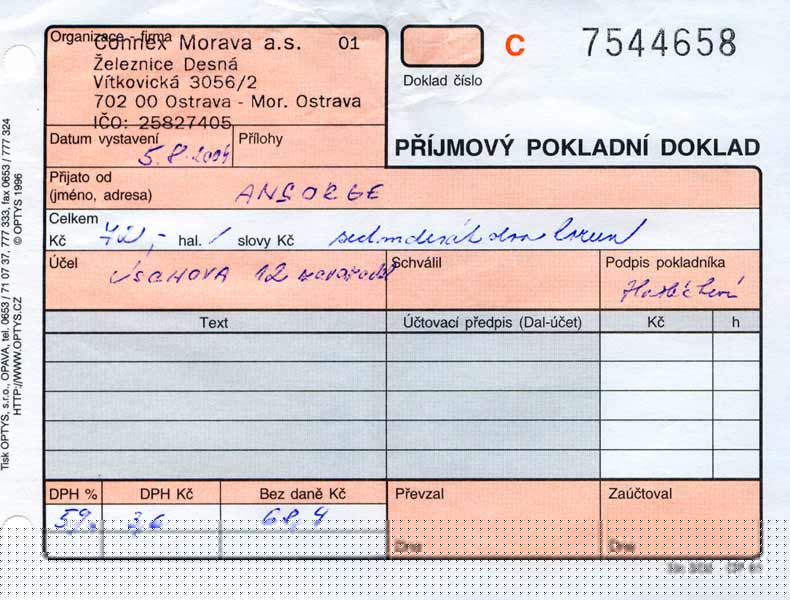 Organizace - firma
Connex Morava a.s. 01
Železnice Desná
Vítkovická 3056/2
702 00 Ostrava - Mor. Ostrava
IČO: 25827405
C 7544658
Doklad číslo
PŘÍJMOVÝ POKLADNÍ DOKLAD
Datum vystavení Přílohy
5.8.2004
Přijato od
(jméno, adresa) ANSORGE
Celkem
Kč 72,- hal. / slovy Kč sedmdesát dva korun
Účel ÚSCHOVA 12 Schválil Podpis pokladníka
Text Účtovací předpis (Dal-účet) Kč h
DPH % DPH Kč Bez daně Kč Převzal Zaúčtoval
5% 3,6 68,4
Dne Dne
Tisk OPTYS, s.r.o., OPAVA, tel. 0653 / 71 07 37, 777 333, fax 0653 / 777 324
HTTP://WWW.OPTYS.CZ © OPTYS 1996